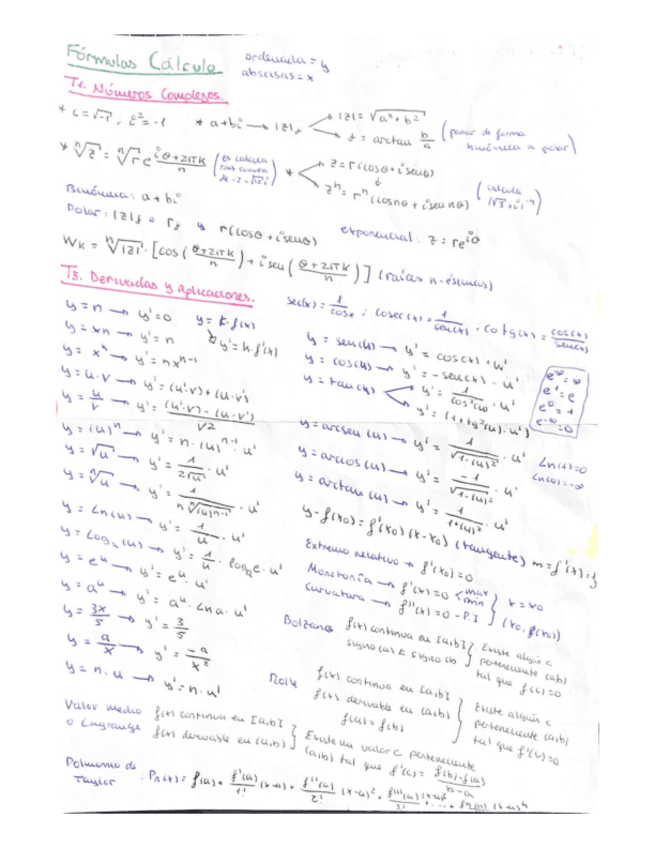 Fórmulas Cálculo
ordenada = y
abscisas = x
T1. Números Complejos.
* i = √-1 ; i² = -1 * a+bi → |z|
|z| = √a²+b²
= arctan b/a (pasar de forma binómica a polar)
* ⁿ√z = ⁿ√r e^i (θ+2πk)/n
* z = r(cosθ + i senθ)
zⁿ = rⁿ (cos nθ + i sen nθ) (calcula
Binómica: a+bi
Polar: |z| o r y r(cosθ + i senθ) exponencial: z = re^iθ
Wk = ⁿ√|z| · [cos((θ+2πk)/n) + i sen((θ+2πk)/n)] (raíces n-ésimas)
T3. Derivadas y aplicaciones.
sec(x) = 1/cosx ; cosec(x) = 1/sen(x) · cotg(x) = cos(x)/sen(x)
y = n → y' = 0 y = k·f(x)
→ y' = k·f'(x)
y = xn → y' = n
y = xⁿ → y' = nxⁿ⁻¹
y = u·v → y' = (u'·v) + (u·v')
y = u/v → y' = (u'·v) - (u·v') / v²
y = sen(u) → y' = cos(u) · u'
y = cos(u) → y' = -sen(u) · u'
y = tan(u) y' = 1/cos²(u) · u'
y' = (1+tg²(u)·u')
e^∞ = ∞
e¹ = e
e⁰ = 1
e^-∞ = 0
y = (u)ⁿ → y' = n·(u)ⁿ⁻¹·u'
y = √u → y' = 1/2√u · u'
y = ⁿ√u → y' = 1/n ⁿ√(u)ⁿ⁻¹ · u'
y = Ln(u) → y' = 1/u · u'
y = Logₐ(u) → y' = 1/u · logₐe · u'
y = eᵘ → y' = eᵘ · u'
y = aᵘ → y' = aᵘ · Lna · u'
y = 3x/5 → y' = 3/5
y = a/x → y' = -a/x²
y = n·u → y' = n·u'
y = arcsen(u) → y' = 1/√1-(u)² · u'
y = arccos(u) → y' = -1/√1-(u)² · u'
y = arctan(u) → y' = 1/1+(u)² · u'
Ln(1) = 0
Ln(0) = -∞
y-f(x₀) = f'(x₀)(x-x₀) (tangente) m = f'(x)
Extremo relativo → f'(x₀) = 0
Monotonía → f'(x) = 0 < max min } x = x₀
Curvatura → f''(x) = 0 - P.I } (x₀, f(x₀))
Bolzano f(x) continua en [a,b]
signo (a) ≠ signo (b)
Existe algún c
perteneciente (a,b)
tal que f(c) = 0
Rolle f(x) continua en [a,b]
f(x) derivable en (a,b)
f(a) = f(b)
Existe algún c
perteneciente (a,b)
tal que f'(c) = 0
Valor medio f(x) continua en [a,b]
o Lagrange f(x) derivable en (a,b)
Existe un valor c perteneciente
(a,b) tal que f'(c) = f(b)-f(a) / b-a
Polinomio de Taylor : Pn(x) = f(a) + f'(a)/1! (x-a) + f''(a)/2! (x-a)² + f'''(a)(x-a)³/3! + ... + (x-a)ⁿ